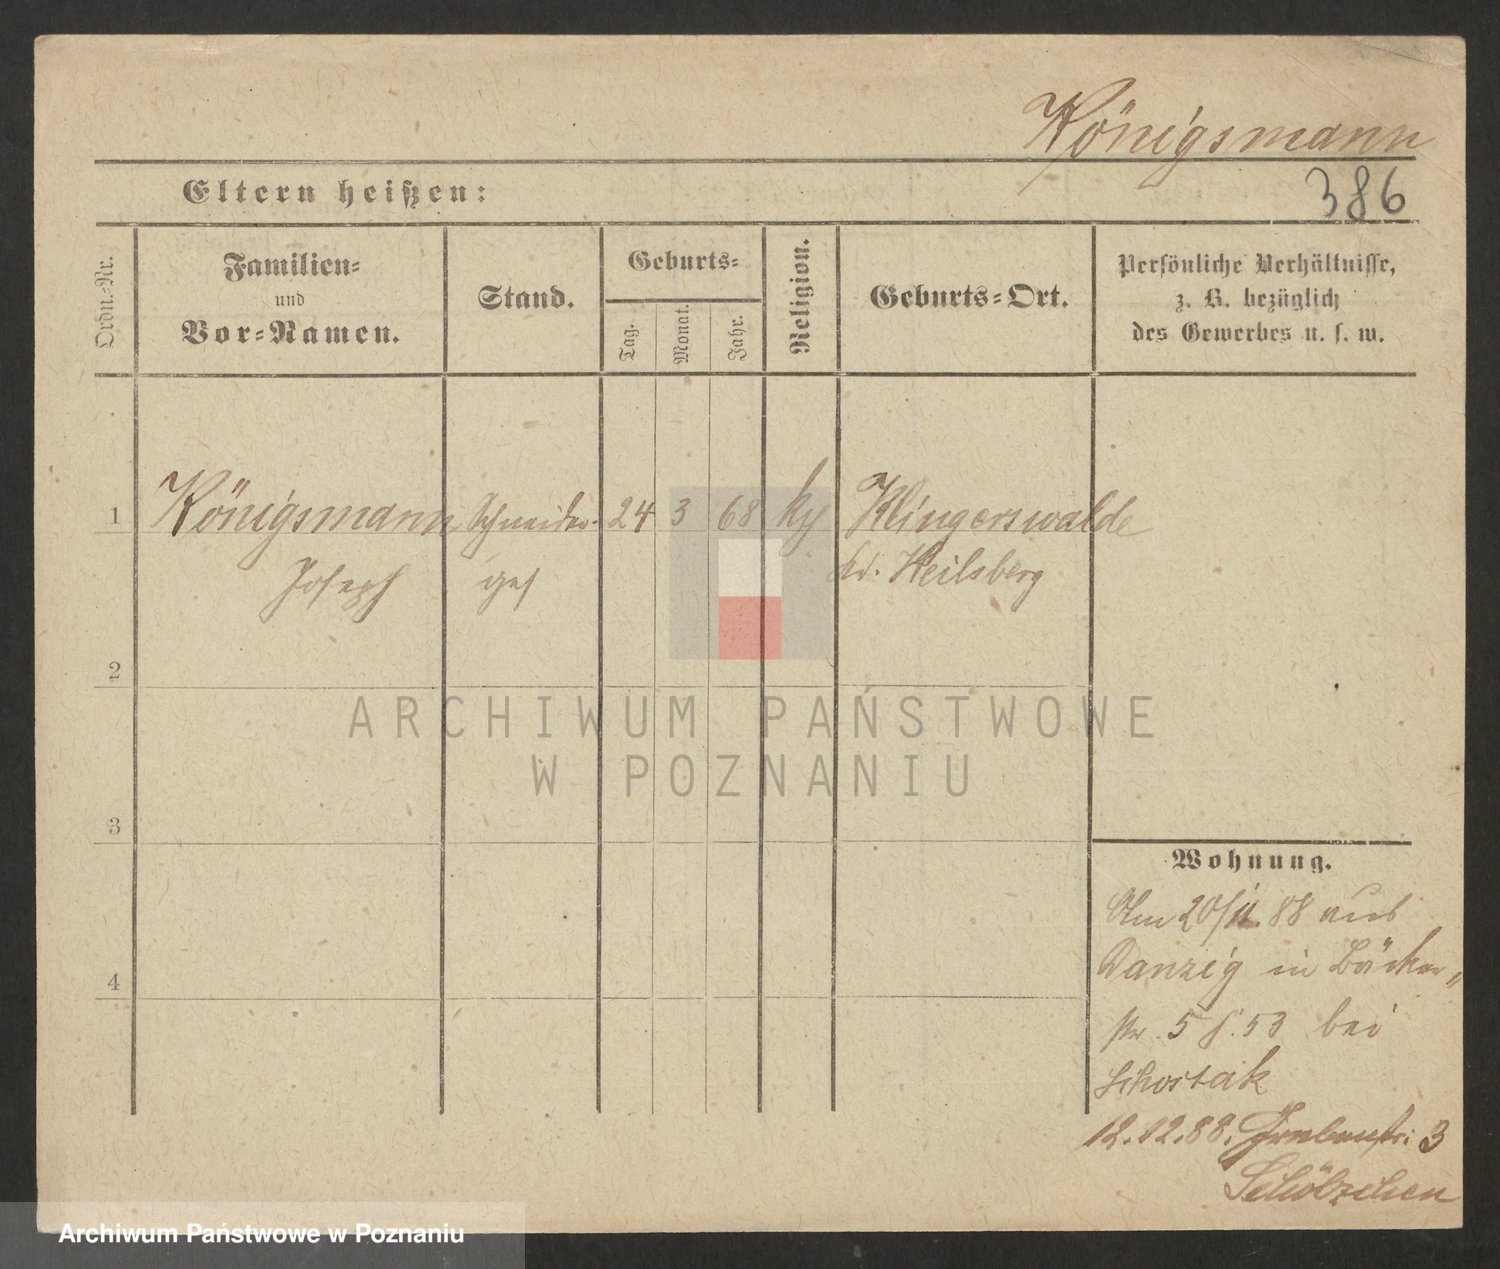 Königsmann
Eltern heißen:
386
Ordn.-Nr.
Familien-
und
Vor-Namen.
Stand.
Geburts-
Tag.
Monat.
Jahr.
Religion.
Geburts-Ort.
Persönliche Verhältnisse,
z. B. bezüglich
des Gewerbes u. s. w.
1
Königsmann Schneider- 24 3 68 Klingerswalde
Joseph ges Kr. Heilsberg
2
ARCHIWUM PAŃSTWOWE
W POZNANIU
3
Wohnung.
Am 20/11. 88 aus
Danzig in Bäcker„
str. 5 53 bei
Schostak
4
12.12.88. Grabenstr: 3
Schölzchen
Archiwum Państwowe w Poznaniu